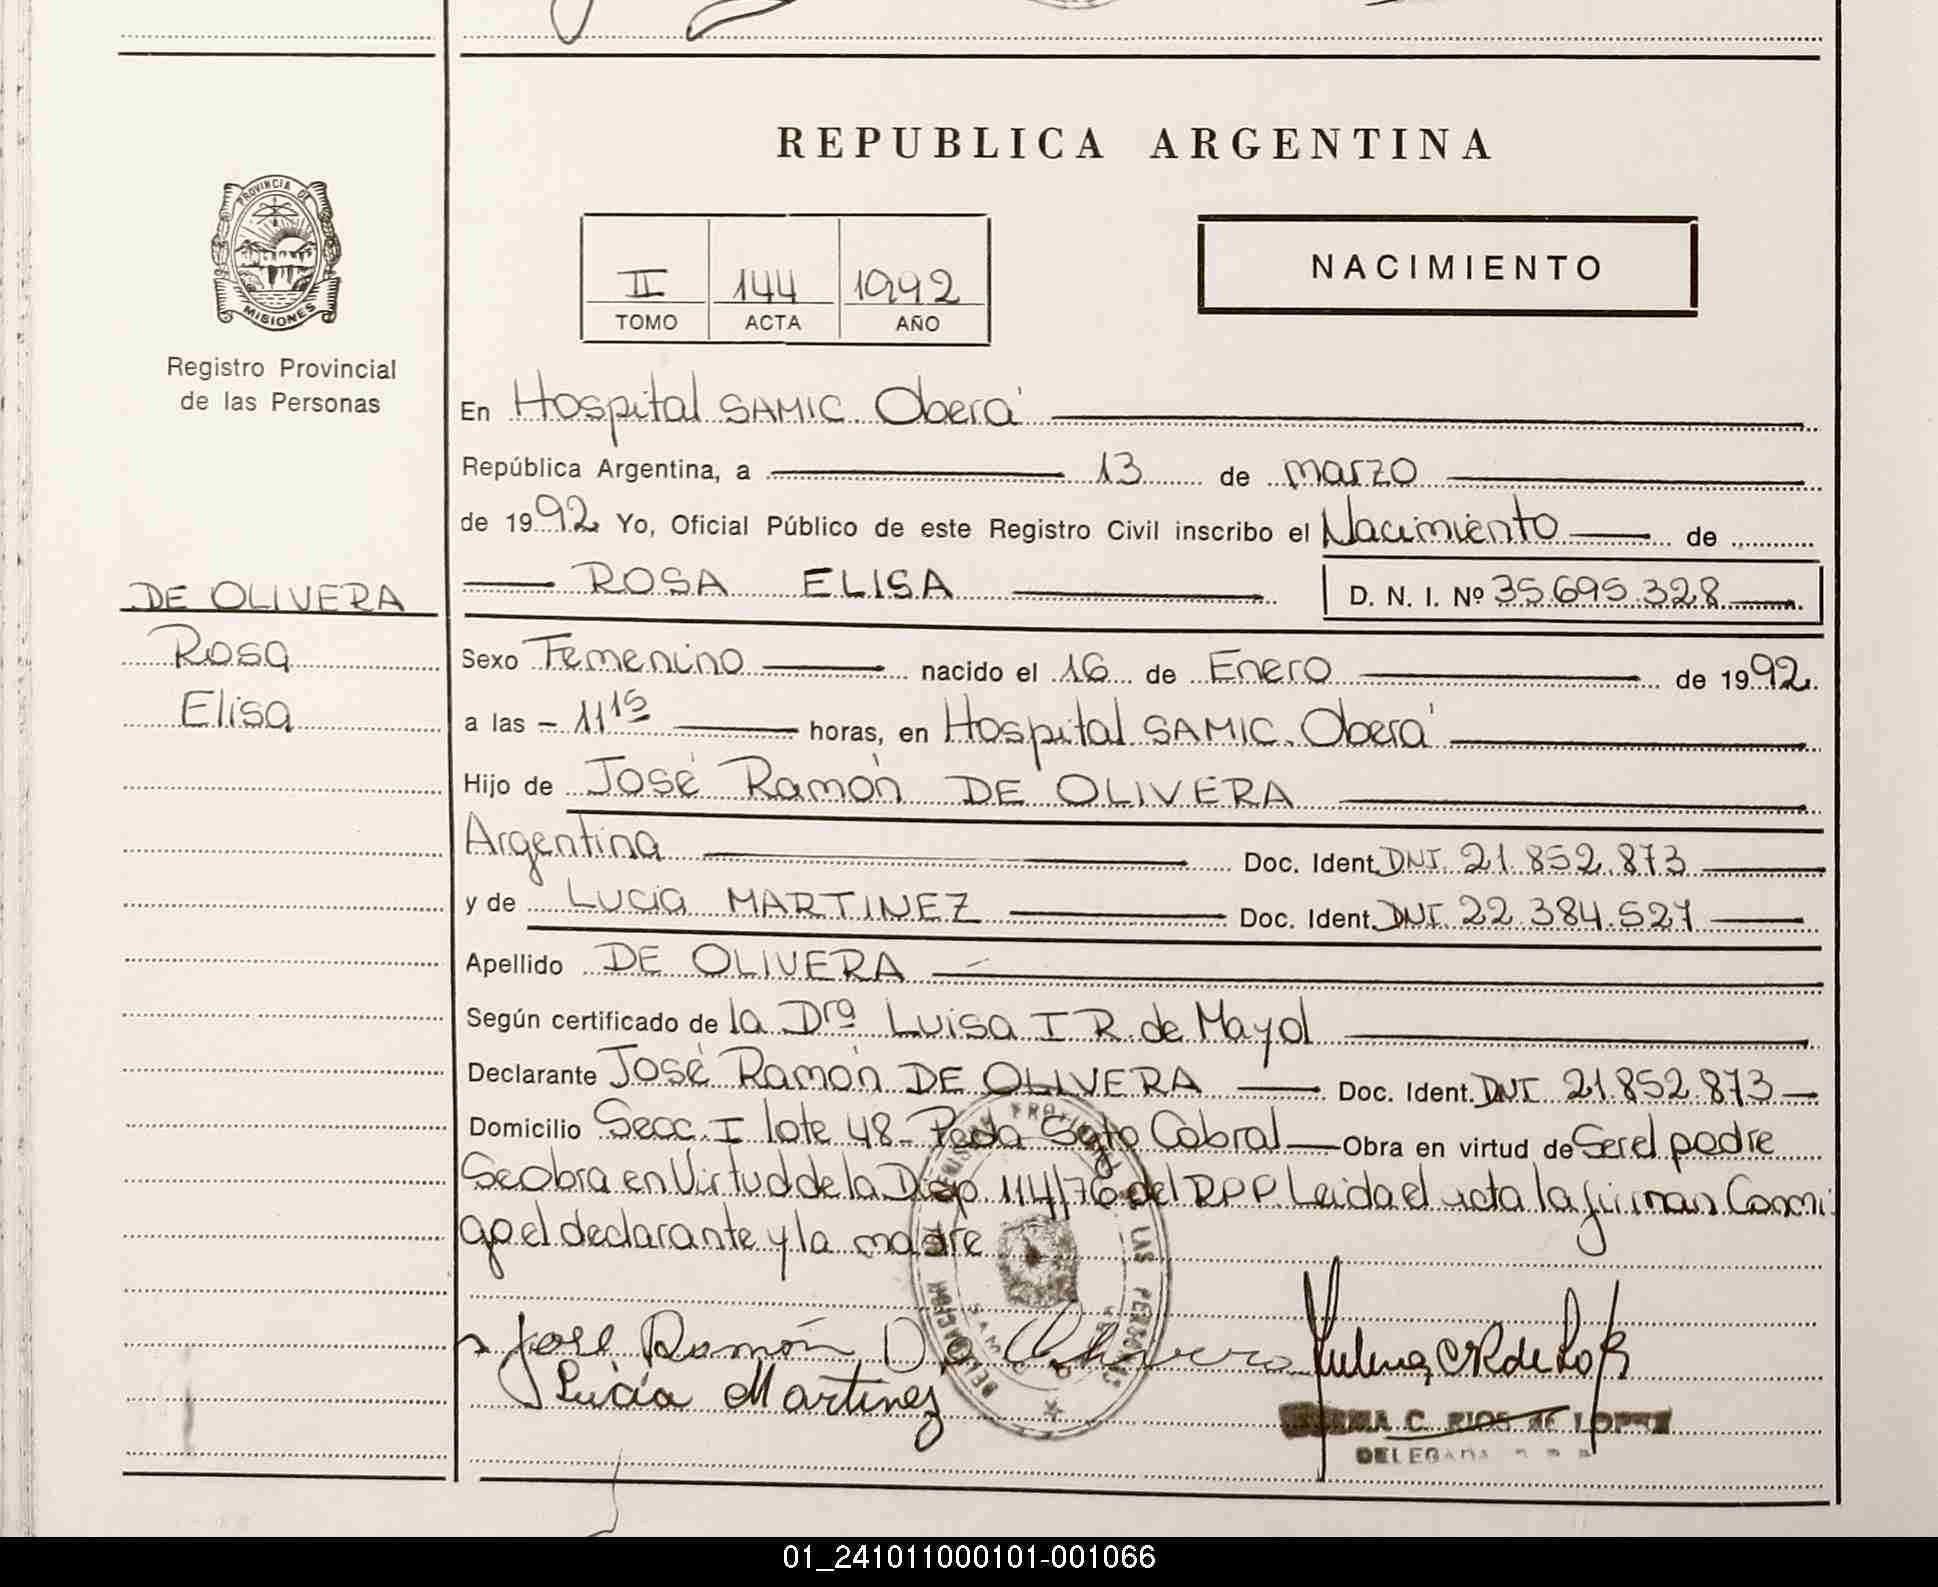 REPUBLICA ARGENTINA
PROVINCIA DE
MISIONES
Registro Provincial
de las Personas
II 144 1992
TOMO ACTA AÑO
NACIMIENTO
En Hospital SAMIC. Oberá
República Argentina, a 13 de marzo
de 1992 Yo, Oficial Público de este Registro Civil inscribo el Nacimiento de
ROSA ELISA D. N. I. Nº 35.695.328
DE OLIVERA
Rosa
Elisa
Sexo Femenino nacido el 16 de Enero de 1992.
a las 11 15 horas, en Hospital SAMIC. Oberá
Hijo de José Ramón DE OLIVERA
Argentina Doc. Ident. DNI. 21.852.873
y de Lucia MARTINEZ Doc. Ident. DNI. 22.384.527
Apellido DE OLIVERA
Según certificado de la Dra Luisa I R. de Mayol
Declarante José Ramón DE OLIVERA Doc. Ident. DNI 21.852.873
Domicilio Secc. I lote 48- Pcda Sgto Cabral Obra en virtud de Ser el padre
Se Obra en Virtud de la Disp. 114/76 del R.P.P. Leida el acta la firman Conmi
go el declarante y la madre
José Ramón De Olivera
Lucia Martinez
C. RIOS de LOPEZ
DELEGADA
LAS PERSONAS
DELEGACION
01_241011000101-001066